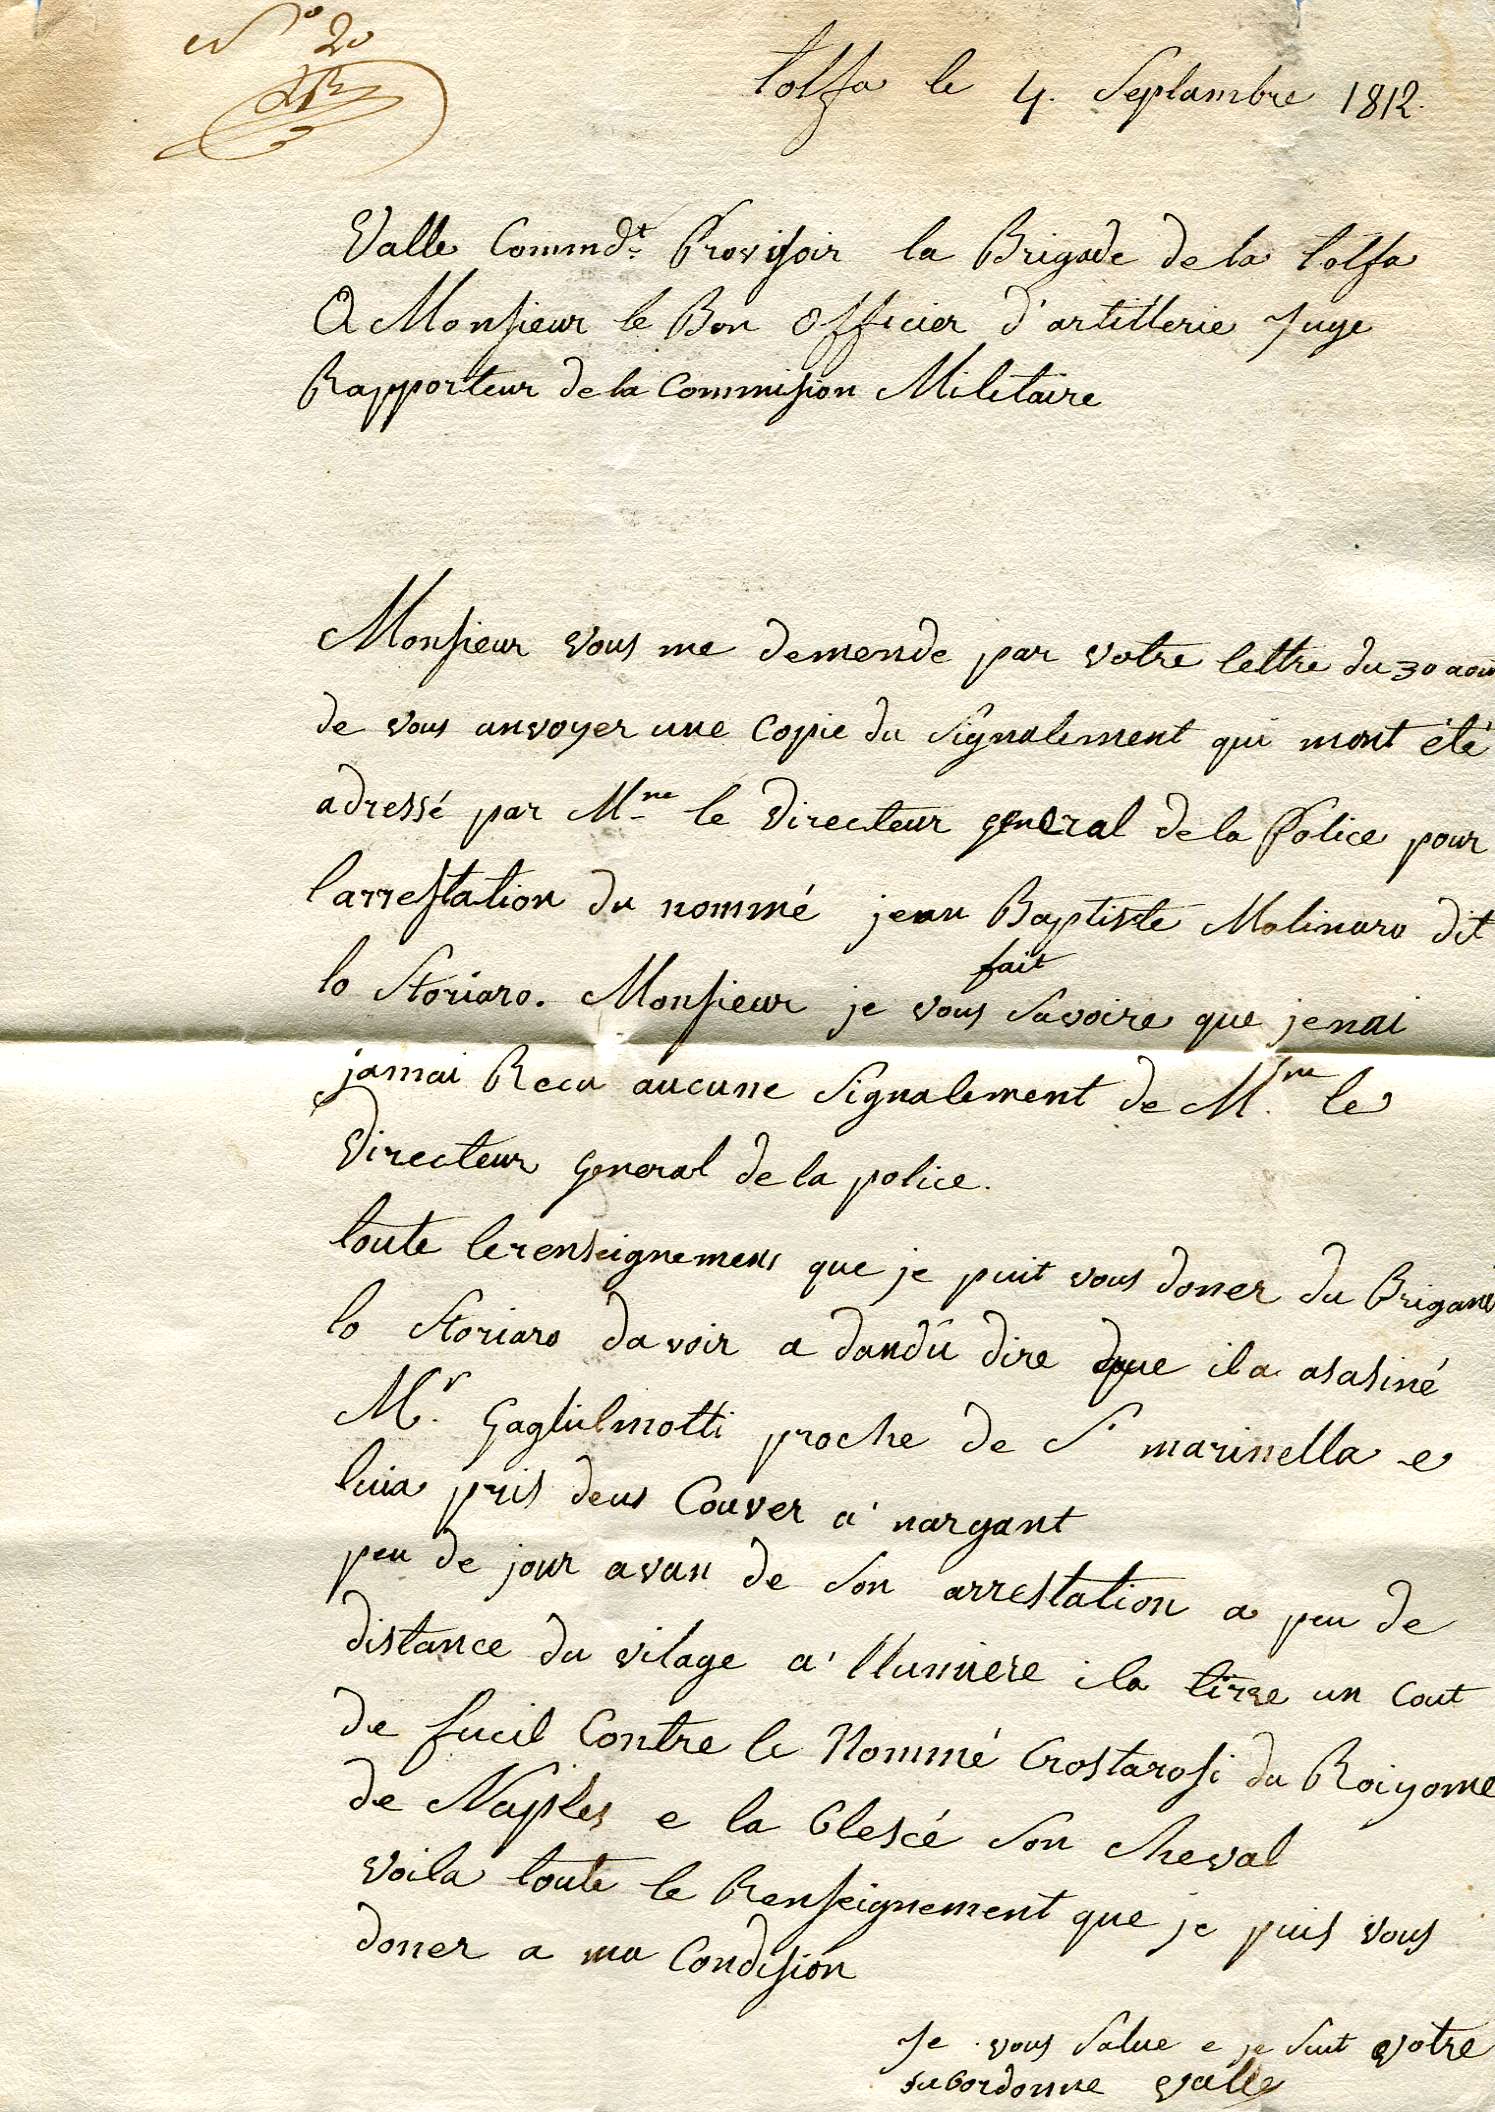 N° 20
tolfa le 4. Septambre 1812.
Valle Commdt. Provisoir la Brigade de la tolfa
A Monsieur le Bon Officier d'artillerie Juge
Rapporteur de la Commision Militaire
Monsieur vous me demende par votre lettre du 30 aou
de vous anvoyer une Copie du Signalement qui mont été
adressé par Mre le Directeur general de la Police pour
larrestation du nommé jean Baptiste Molinaro dit
lo Storiaro. Monsieur je vous fait Savoire que jenai
jamai Recu aucune Signalement de M.re le
Directeur general de la police.
toute lerenseignemens que je puit vous doner du Brigand
lo Storiaro davoir a dandû dire que il a asasiné
Mr. Gaglulmotti proche de S. marinella e
luia pris deus Couver a' nargant
peu de jour avan de Son arrestation a peu de
distance du vilage a' llumiere ila tirre un Cout
de fucil Contre le Nommé Crostarosi du Roigome
de Naples e la blescé Son cheval
voila toute le Renseignement que je puis vous
doner a ma Condision
Je vous Salue e je Suit votre
subordonne Valle